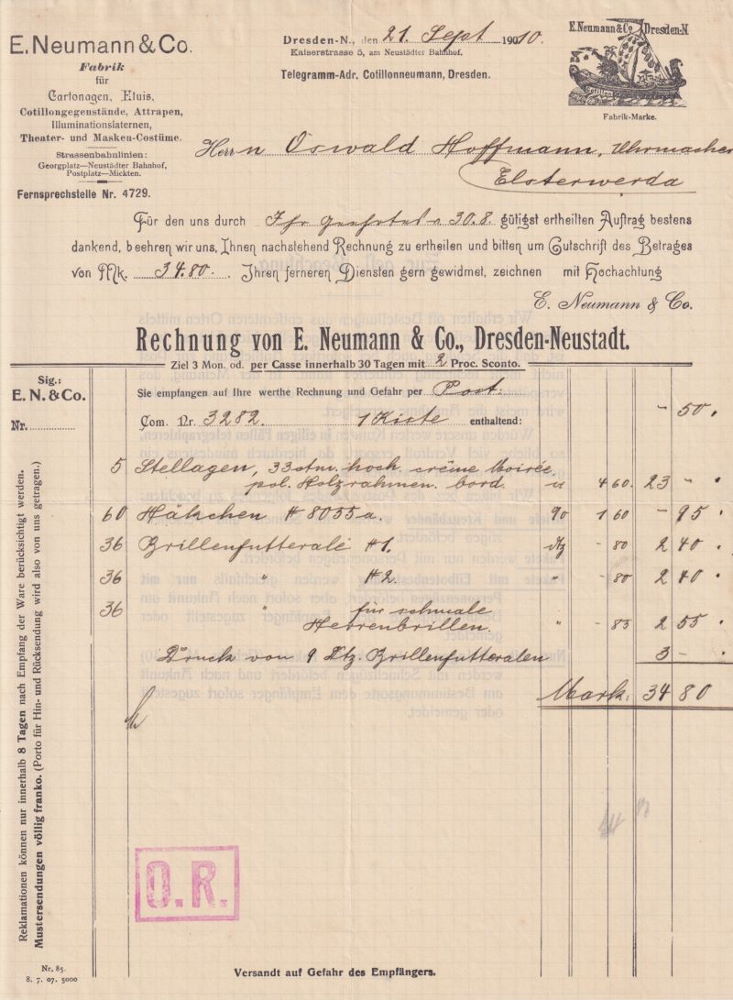 E. Neumann & Co.
Fabrik
für
Cartonagen, Etuis,
Cotillongegenstände, Attrapen,
Illuminationslaternen,
Theater- und Masken-Costüme.
Strassenbahnlinien:
Georgplatz—Neustädter Bahnhof,
Postplatz—Mickten.
Fernsprechstelle Nr. 4729.
Dresden-N., den 21. Sept 1910.
Kaiserstrasse 5, am Neustädter Bahnhof.
Telegramm-Adr. Cotillonneumann, Dresden.
E. Neumann & Co Dresden-N
Fabrik-Marke.
Herrn Oswald Hoffmann, Uhrmacher
Elsterwerda
Für den uns durch Ihr geehrtes v 30.8. gütigst ertheilten Auftrag bestens
dankend, beehren wir uns, Ihnen nachstehend Rechnung zu ertheilen und bitten um Gutschrift des Betrages
von Mk. 34.80. Ihren ferneren Diensten gern gewidmet, zeichnen mit Hochachtung
E. Neumann & Co.
Rechnung von E. Neumann & Co., Dresden-Neustadt.
Ziel 3 Mon. od. per Casse innerhalb 30 Tagen mit 2 Proc. Sconto.
Sig.:
E. N. & Co.
Nr.
Sie empfangen auf Ihre werthe Rechnung und Gefahr per Post.
Com. Nr. 3282. 1 Kiste enthaltend: - 50.
5 Stellagen, 33 ctm. hoch crême Moirée
pol. Holzrahmen. bord. 4 60. 23 - .
60 Häkchen # 8055a. % 1 60 - 95.
36 Brillenfutterale # 1. Dtz - 80 2 40.
36 " # 2. " - 80 2 40.
36 " für schmale
Herrenbrillen. " - 85 2 55.
Druck von 9 Dtz. Brillenfutteralen 3 - .
Mark: 34 80
O.R.
Reklamationen können nur innerhalb 8 Tagen nach Empfang der Ware berücksichtigt werden.
Mustersendungen völlig franko. (Porto für Hin- und Rücksendung wird also von uns getragen.)
Nr. 85.
8. 7. 07. 5000
Versandt auf Gefahr des Empfängers.